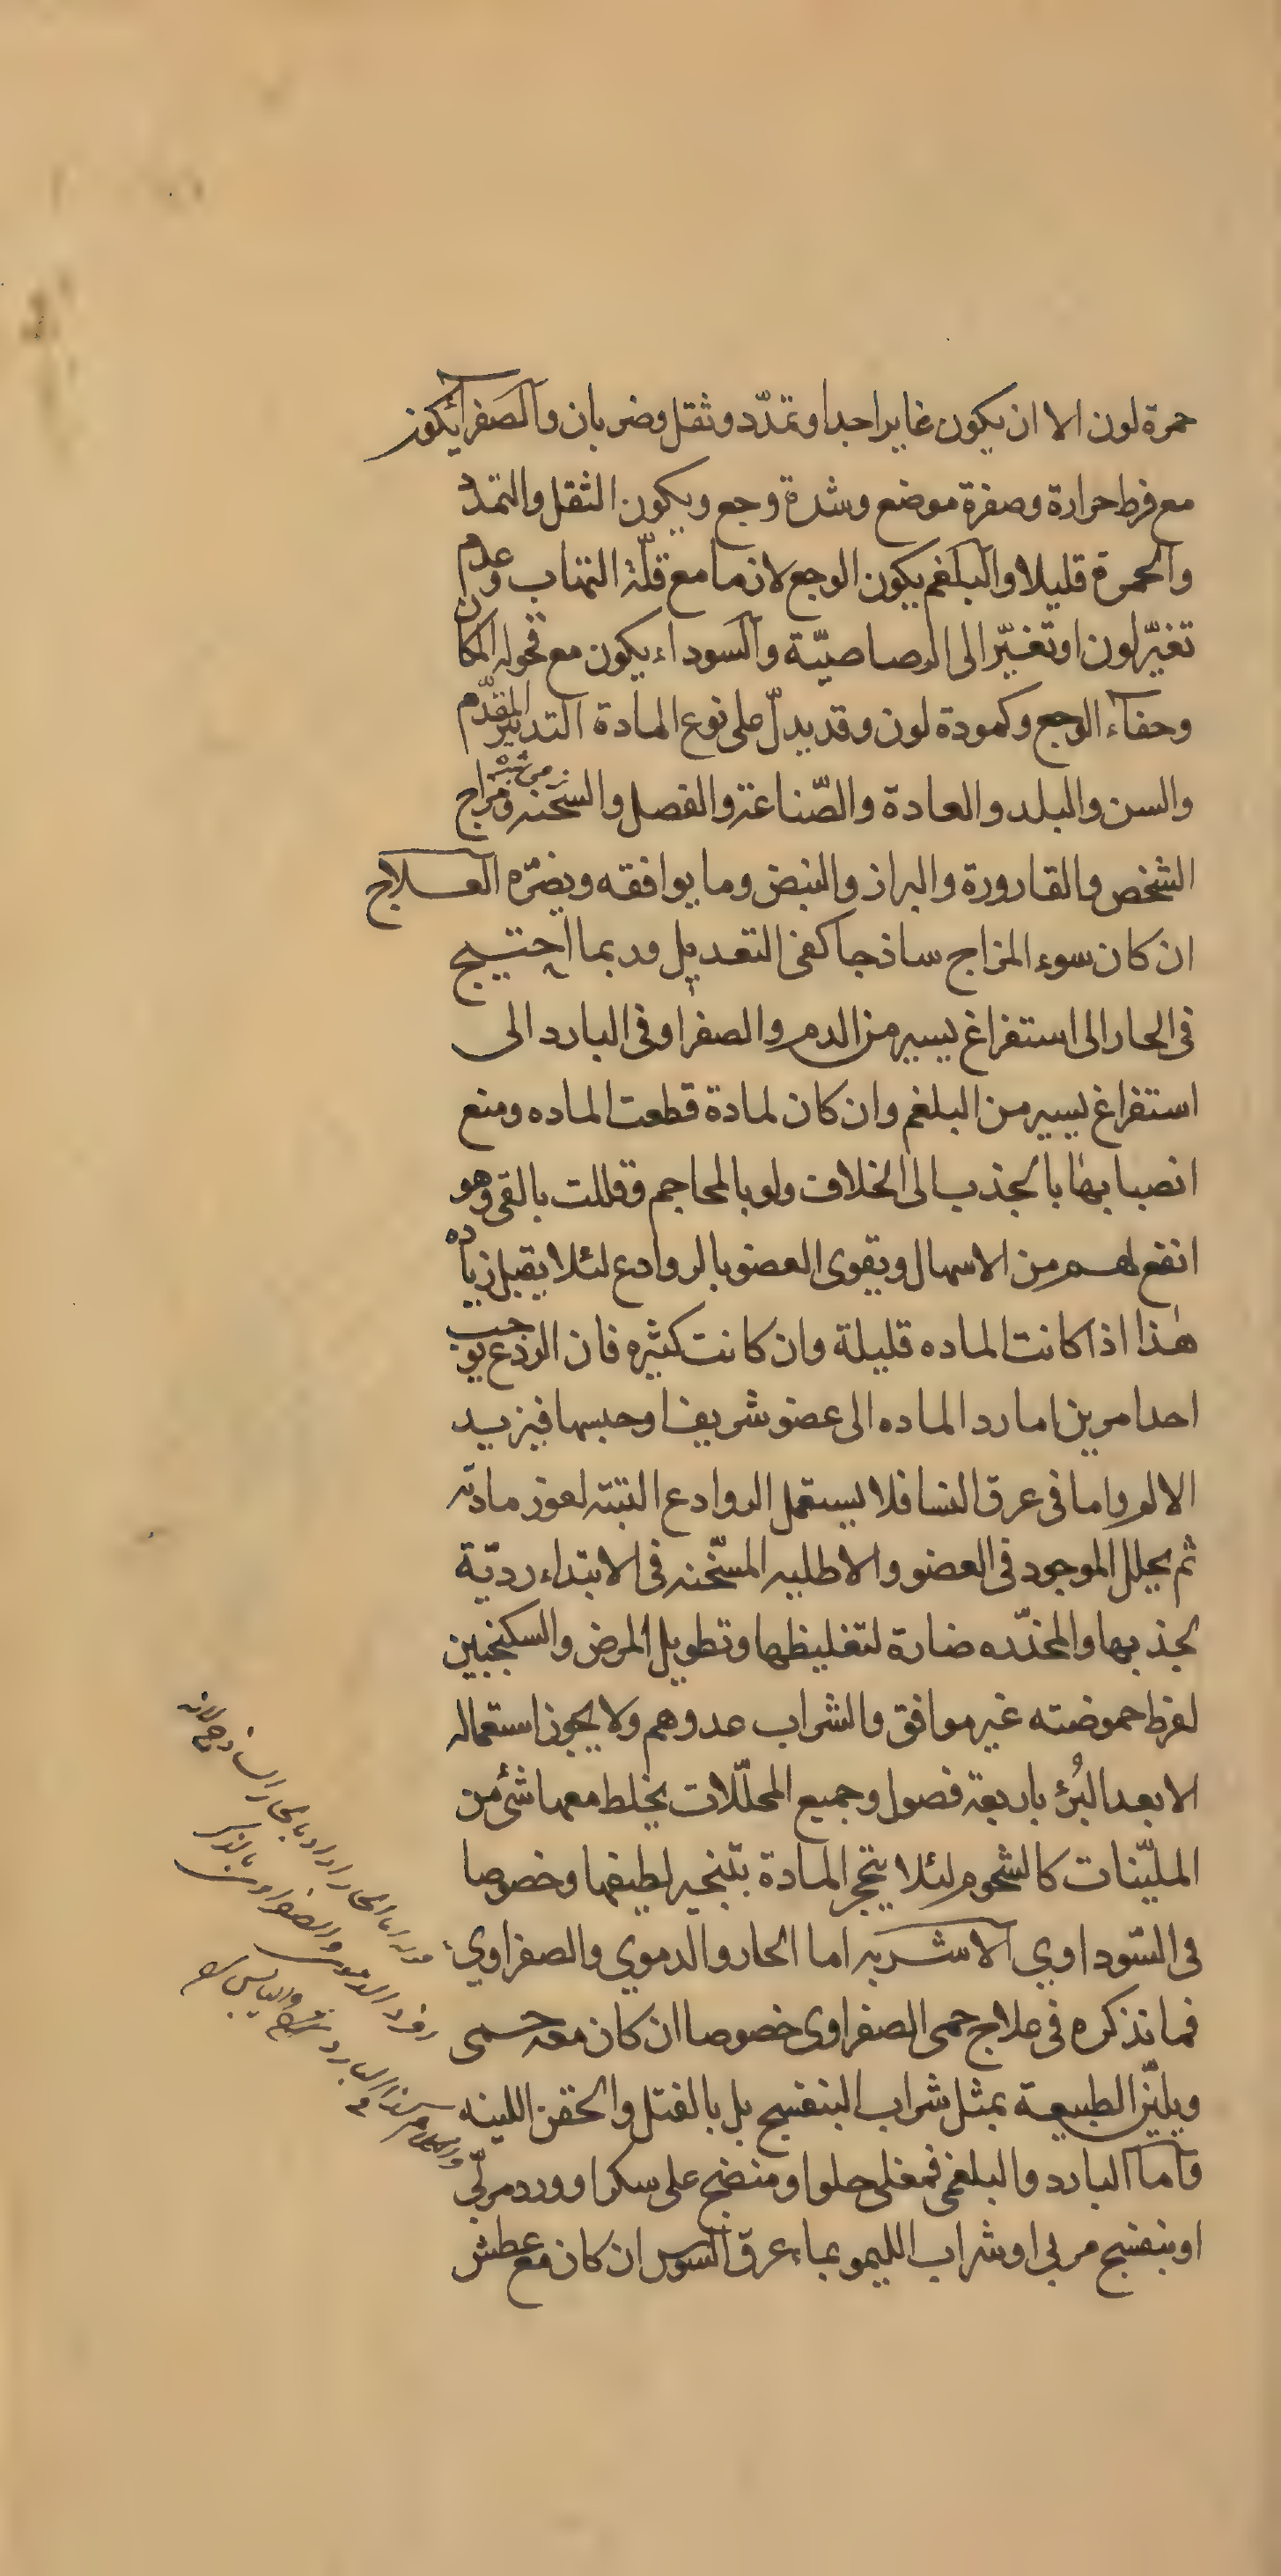 حمرة لون الا ان يكون غايرا جدا وتمدّد وثقل وضربان والصفرا يكون
مع فرط حرارة وصفرة موضع وشدة وجع ويكون الثقل والتمدد
والحمرة قليلا والبلغم يكون الوجع لازما مع قلّة التهاب وعدم
تغيّر لون او تغيّر الى الرصاصيّة والسوداء يكون مع قحولة المكان
وخفاء الوجع وكمودة لون وقد يدلّ على نوع المادة التدبير المقدّم
والسن والبلد والعادة والصّناعة والفصل والسحنه ومزاج
الشخص والقارورة والبراز والنبض وما يوافقه ويضرّه العلاج
ان كان سوء المزاج ساذجا كفى التعديل وربما احتيج
فى الحار الى استفراغ يسير من الدم والصفرا وفى البارد الى
استفراغ يسير من البلغم وان كان لمادة قطعت الماده ومنع
انصبابها بالجذب الى الخلاف ولو بالمحاجم وقللت بالقى وهو
انفع لهم من الاسهال ويقوى العضو بالروادع لئلا يقبل زياده
هذا اذا كانت الماده قليلة وان كانت كثيره فان الردع يوجب
احد امرين اما رد الماده الى عضو شريف او حبسها فيزيد
الالم واما فى عرق النسا فلا يستعمل الروادع البتة لغور مادته
ثم يحلل الموجود فى العضو والاطليه المسخّنه فى الابتداء رديّة
لجذبها والمخدّره ضارة لتغليظها وتطويل المرض والسكنجبين
لفرط حموضته غير موافق والشراب عدوهم ولا يجوز استعماله
الا بعد البُرء باربعة فصول وجميع المحلّلات يخلط معها شئ من
المليّنات كالشحوم لئلا يتحجر المادة بتبخير لطيفها وخصوصا
فى السّوداوي الاشربه اما الحار والدموي والصفراوي
فما نذكره فى علاج حمى الصفراوى خصوصا ان كان معه حمى
ويليّن الطبيعة بمثل شراب البنفسج بل بالفتل والحقن اللينه
واما البارد والبلغمى فمغلى حلوا ومنضج على سكر او ورد مربّي
او بنفسج مربى او شراب الليمو بماء عرق السوس ان كان مع عطش
قوله اما الحار اراد بالحار الساذج لانه
افرد الدموى والصفراوى بالذكر
والكلام فى هذا البارد